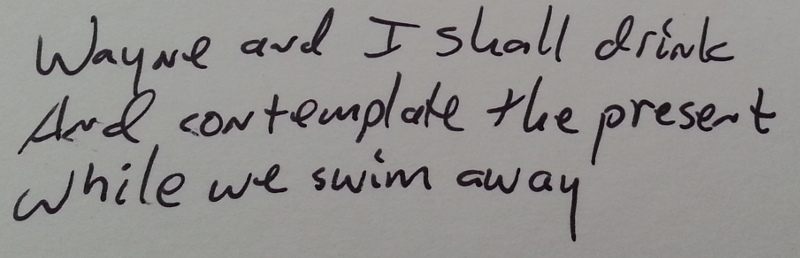 Wayne and I shall drink
And contemplate the present
while we swim away